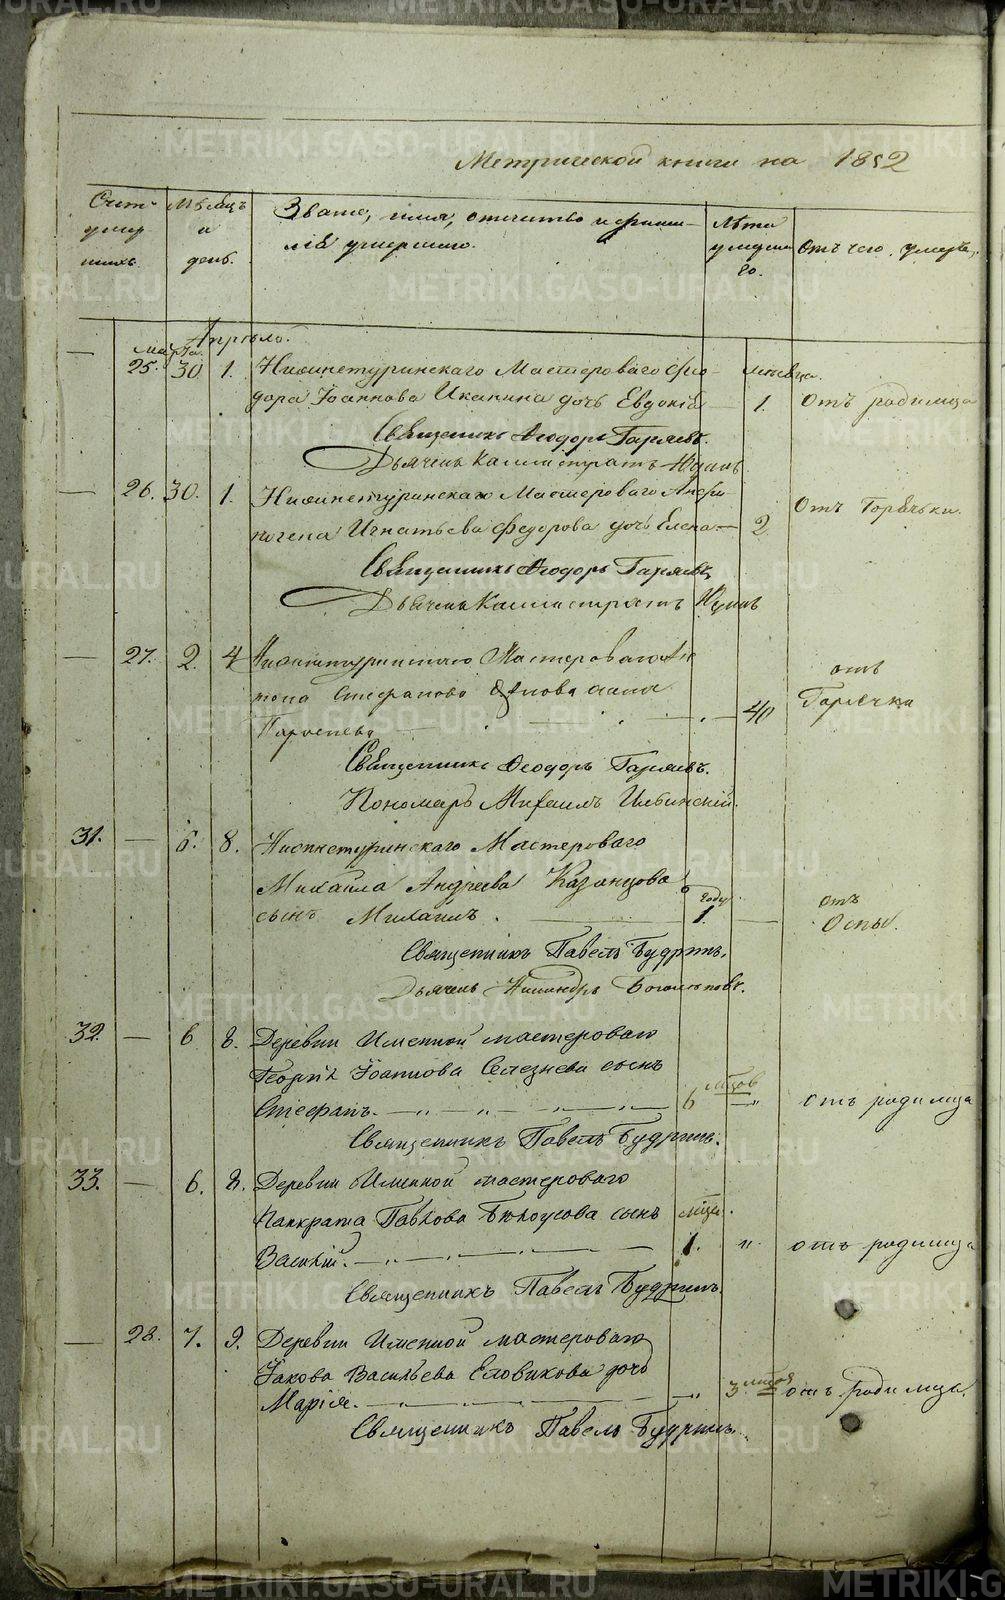 Метрической книги на 1852
Счетъ умер шихъ
Мѣсяцъ и день.
Званіе, имя, отчество и фами-
лія умершаго.
Лѣта умерша го.
Отъ чего умерь,
Апрѣль.
марта.
25. 30 1. Нижнетуринскаго Мастероваго Фео- мѣсяца.
дора Іоаннова Иканина дочь Евдокія 1. Отъ родимца
Священникъ Ѳеодоръ Гаряевъ.
Дьячекъ Каллистратъ
26. 30. 1. Нижнетуринскаго Мастероваго Анфи- Отъ Горячьки.
ногена Игнатьева Федорова дочь Елена 2
Священникъ Ѳеодоръ Гаряевъ
Дьячекъ Каллистратъ
27. 2. 4 Нижнетуринскаго Мастероваго Ан отъ
тона Стефанова жена Горячка
40
Священникъ Ѳеодоръ Гаряевъ.
Пономарь Михаилъ
31. — 6. 8. Нижнетуринскаго Мастероваго
Михаила Андреева Казанцова году отъ
сынъ Михаилъ. 1. Оспы.
Священникъ Павелъ Будринъ.
Дьячекъ Никандръ Богомоловъ.
32. — 6 8. Деревни Именной мастероваго
Георгія Іоаннова Селезнева сынъ мѣсяцов
Стефанъ. 6 отъ родимца
Священникъ Павелъ Будринъ.
33. — 6. 8. Деревни Именной мастероваго
Панкрата Павлова Бѣлоусова сынъ мѣсца.
Василій. 1. " отъ родимца
Священникъ Павелъ Будринъ
— 28. 7. 9. Деревни Именной мастероваго
Іакова Васильева Еловикова дочь
Марія. " 3 отъ родимца.
Священникъ Павелъ Будринъ.
METRIKI.GASO-URAL.RU